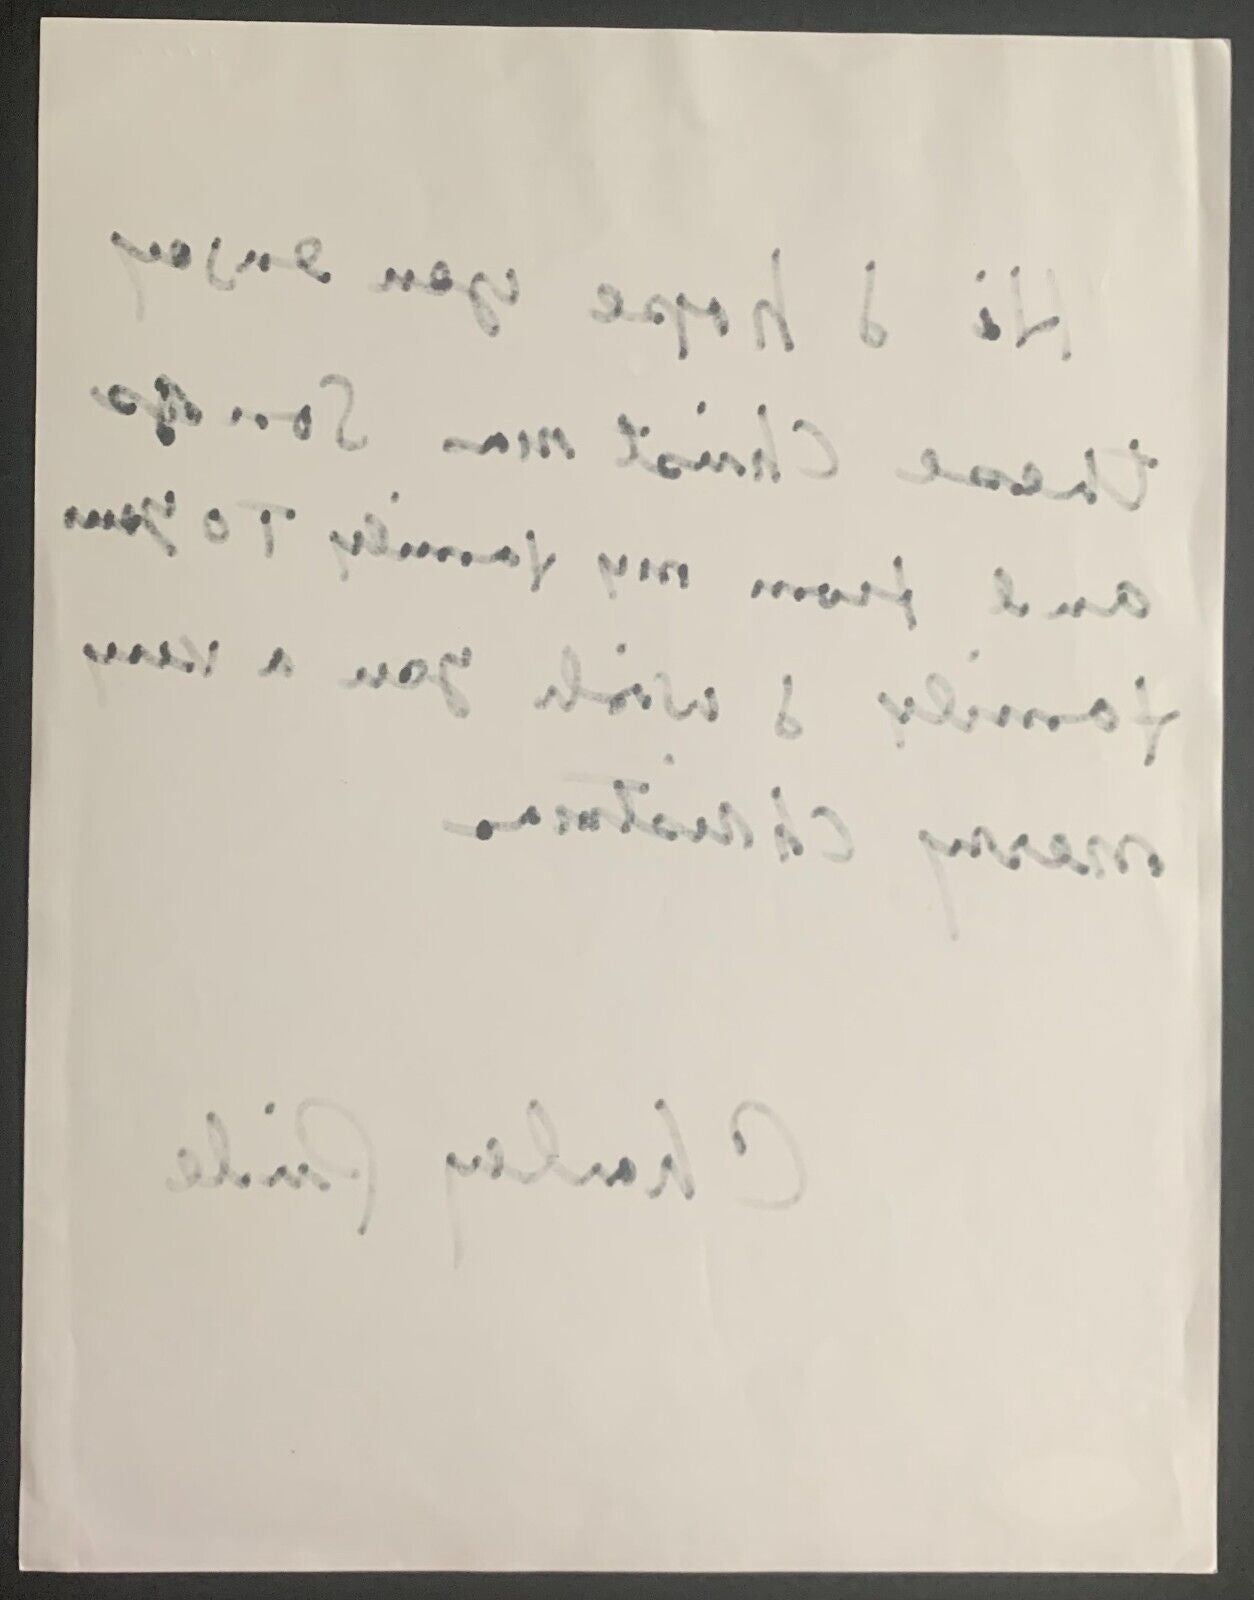 Hi I hope you enjoy
these Christmas Songs
and from my family TO your
family I wish you a very
merry Christmas
Charley Pride